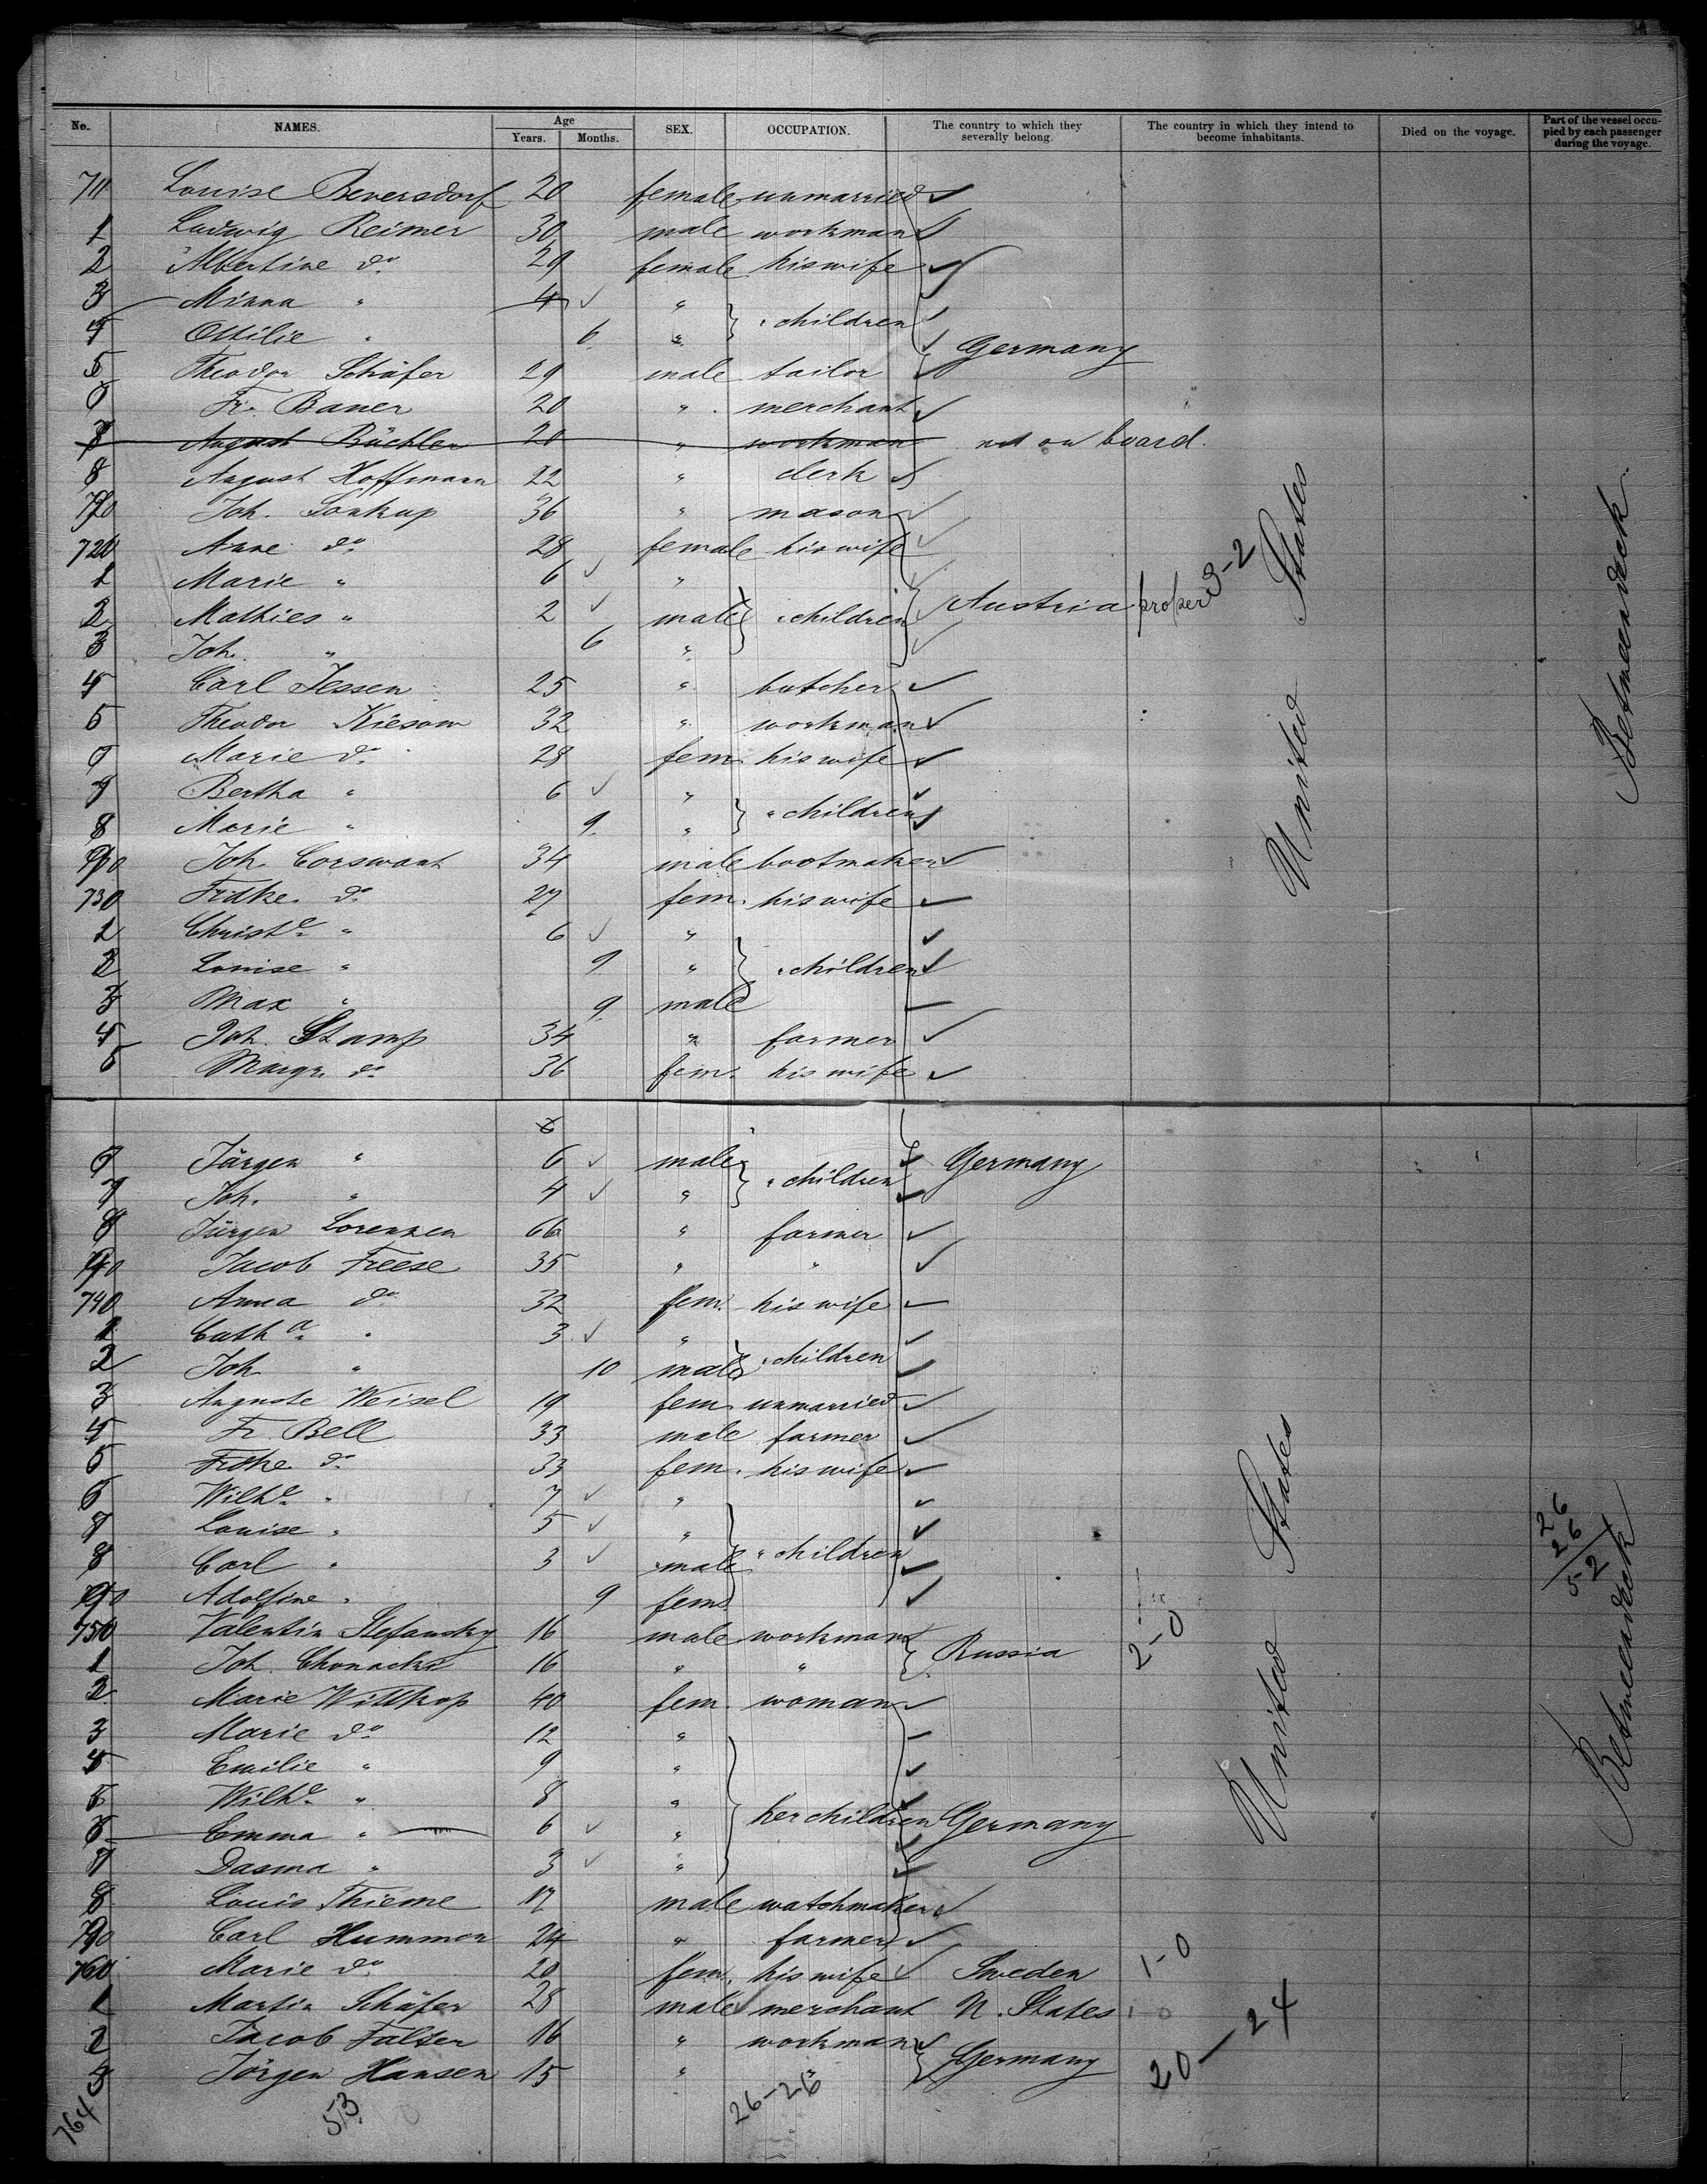 No. NAMES. Age Years. Months. SEX. OCCUPATION. The country to which they severally belong. The country in which they intend to become inhabitants. Died on the voyage. Part of the vessel occupied by each passenger during the voyage.
711 Louise Beversdorf 20 female unmarried
1 Ludwig Reimer 30 male workman
2 Albertine do 29 female his wife
3 Minna " 4 "
4 Ottilie " 6 " " children
Germany
5 Theodor Schäfer 29 male tailor
6 Fr. Bauer 20 " merchant
7 August Büchler 20 " workman not on board.
8 August Hoffmann 22 " clerk
Joh. Soukup 36 " mason
720 Anne do 28 female his wife
1 Marie " 6 "
2 Mathies " 2 male " children Austria proper 3-2
3 Joh. " 6 "
4 Carl Jessen 25 " butcher
5 Theodor Kiesow 32 " workman
Marie do 28 fem. his wife
Bertha " 6 "
8 Marie " 9 " " children
Joh. Corswant 34 male bootmaker
730 Fridke. do 27 fem. his wife
Christe " 6 "
2 Louise " 9 " " children
3 Max " 9 male
4 Joh. Stamp 34 " farmer
5 Margr. do 36 fem. his wife
United States
Betweendeck
6
Jürgen " 6 male Germany
7 Joh. " 4 " " children
8 Jürgen Lorenzen 66 " farmer
Jacob Freese 35 " "
740 Anna do 32 fem. his wife
1 Catha " 3 "
2 Joh. " 10 male " children
3 Auguste Weisel 19 fem unmarried
4 Fr. Bell 33 male farmer
5 Fridke do 33 fem. his wife
6 Wilhe " 7 "
7 Louise " 5 "
8 Carl " 3 male " children
Adolfine " 9 fem.
750 Valentin Stefansky 16 male workman
Russia 2-0
1 Joh. Chonacki 16 " "
2 Marie Wittkop 40 fem. woman
3 Marie do 12 "
4 Emilie " 9 "
5 Wilhe " 8 "
her children Germany
6 Emma " 6 "
7 Dasma " 3 "
8 Louis Thieme 17 male watchmaker
Carl Hummer 24 " farmer
760 Marie do 20 fem. his wife Sweden 1-0
1 Martin Schäfer 28 male merchant U. States 1-0
2 Jacob Falter 16 " workman
Germany 20-24
3 Jörgen Hansen 15 " "
United States
26
26
52
Betweendeck
764 53 26-26